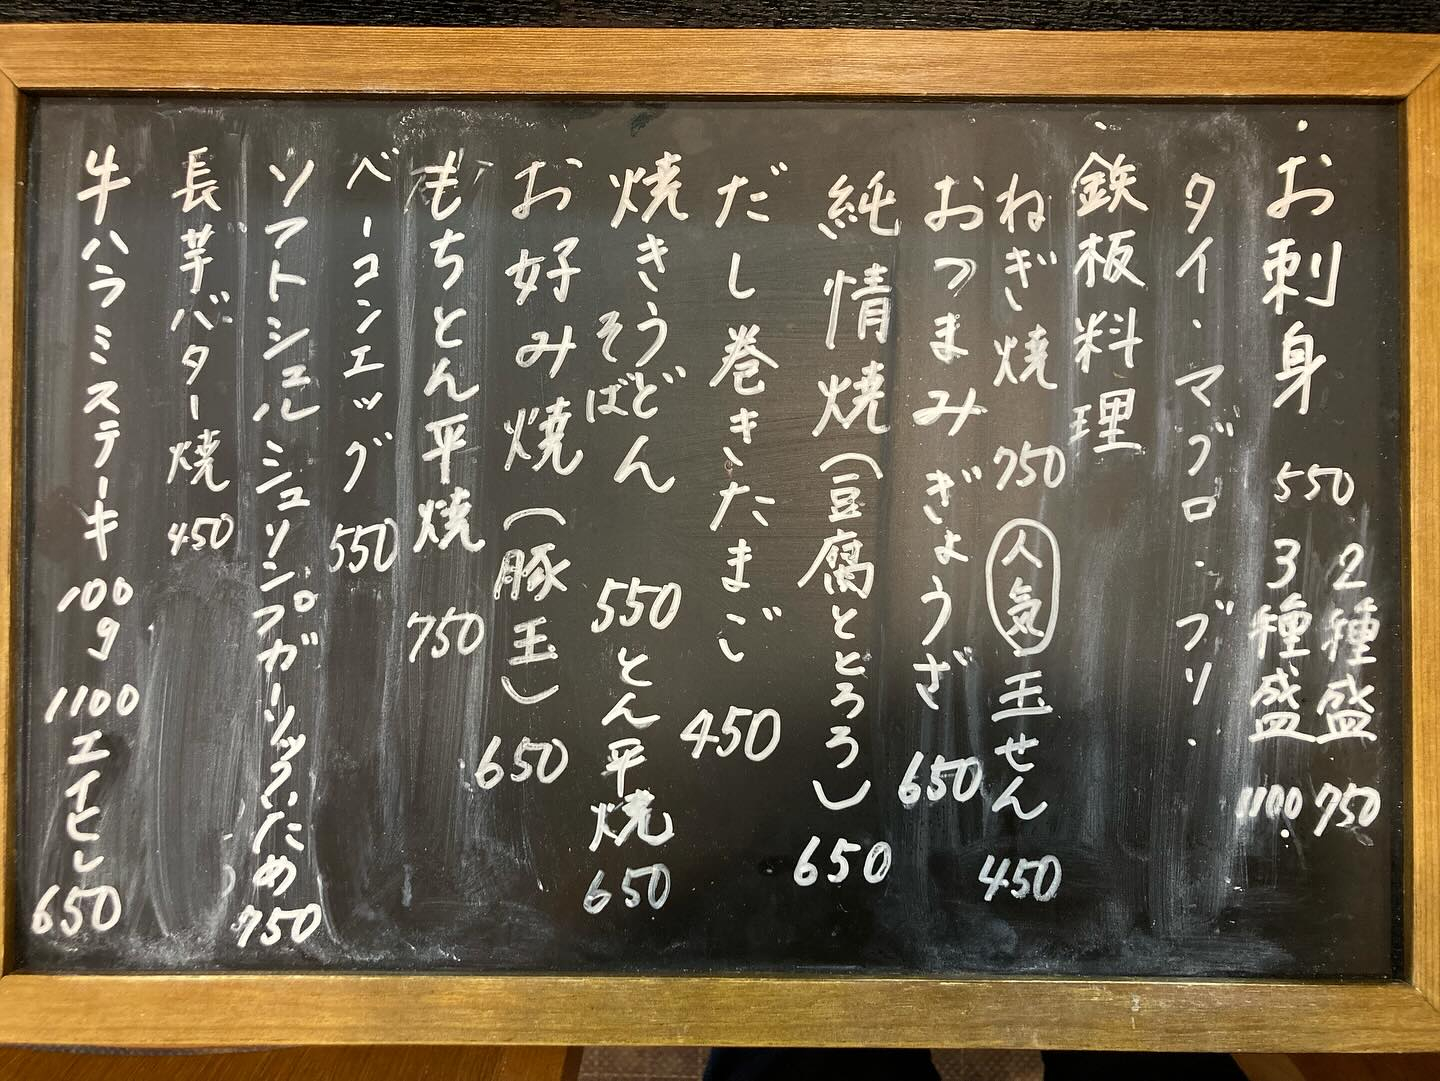 ・お刺身 550 2種盛 750
3種盛 1100.
タイ・マグロ・ブリ・
・鉄板料理
ねぎ焼 750 人気 玉せん 450
おつまみぎょうざ 650
純情焼(豆腐ととろろ) 650
だし巻きたまご 450
焼きうどん 550 とん平焼 650
そば
お好み焼(豚玉) 650
もちとん平焼 750
ベーコンエッグ 550
ソフトシェルシュリンプガーリックいため 750
長芋バター焼 450
牛ハラミステーキ 100g 1100 エイヒレ 650